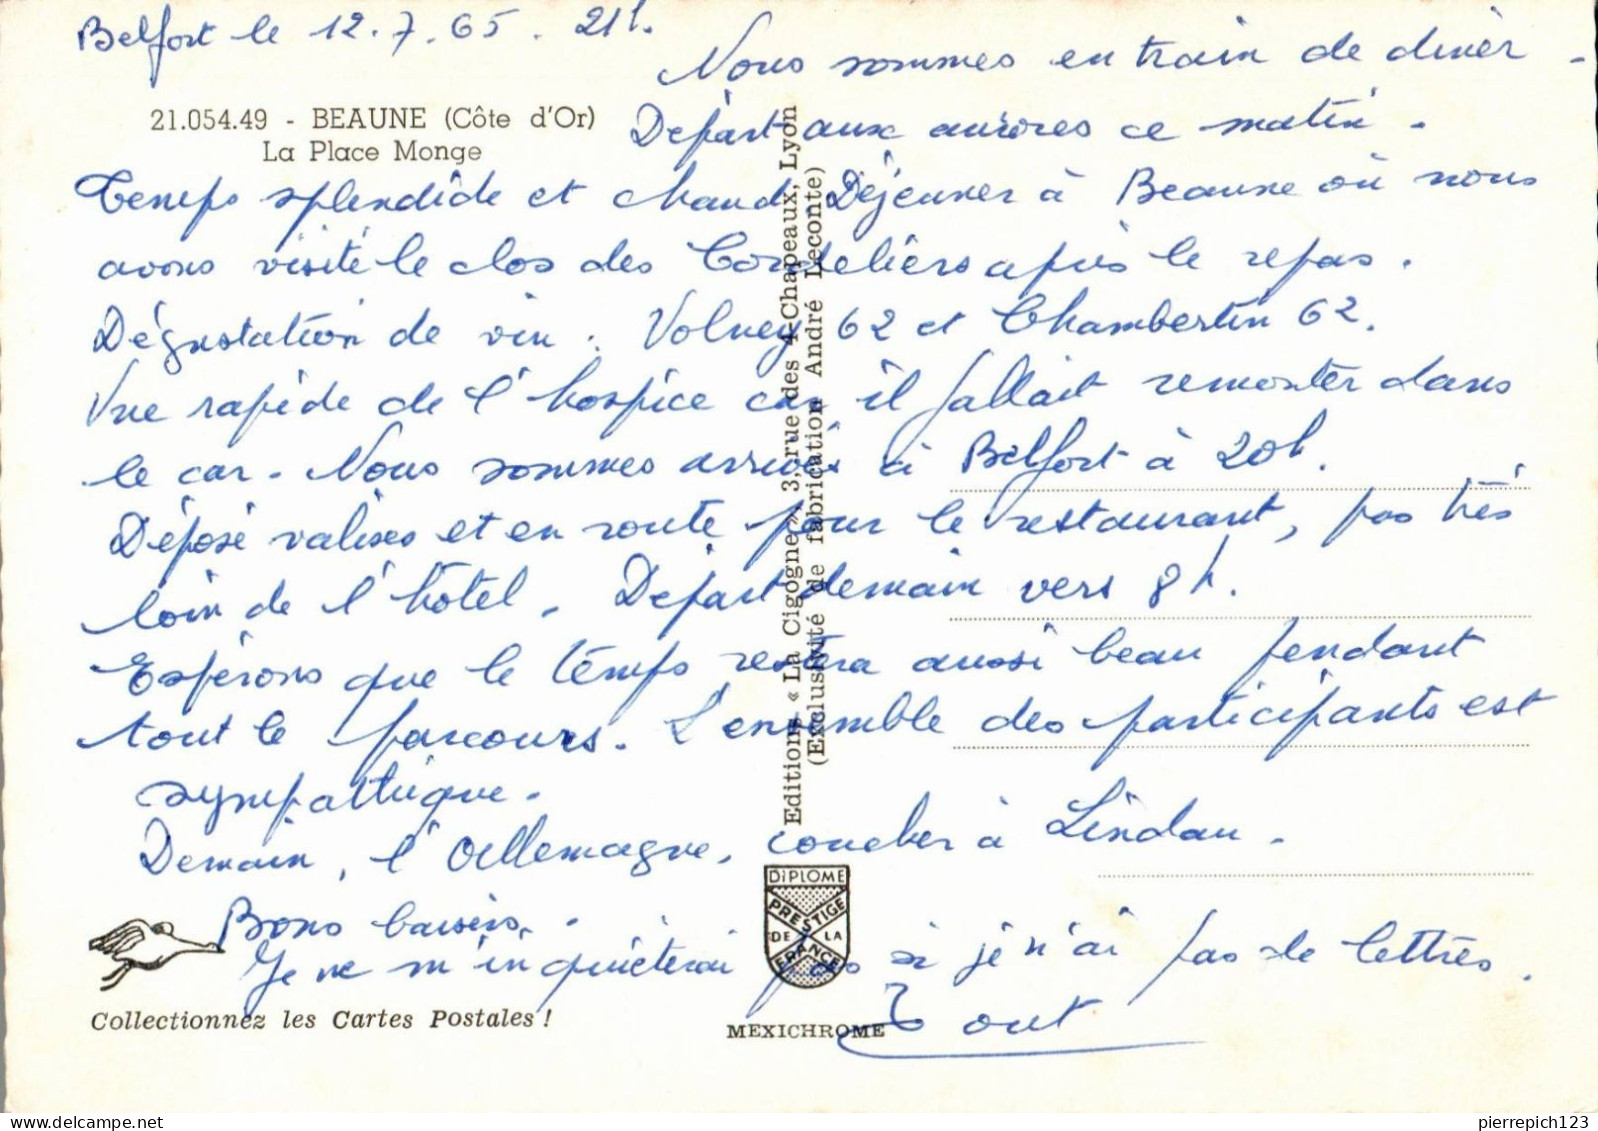 Belfort le 12.7.65. 21h.
Nous sommes en train de diner.
21.054.49 - BEAUNE (Côte d'Or)
La Place Monge
Départ aux aurores ce matin.
Temps splendide et chaud. Déjeuner à Beaune où nous
avons visité le clos des Cordeliers après le repas.
Dégustation de vin. Volney 62 et Chambertin 62.
Vue rapide de l'hospice car il fallait remonter dans
le car. Nous sommes arrivés à Belfort à 20h.
Déposé valises et en route pour le restaurant, pas très
loin de l'hôtel. Départ demain vers 8h.
Espérons que le temps restera aussi beau pendant
tout le parcours. L'ensemble des participants est
sympathique.
Demain, l'Allemagne, coucher à Lindau.
Bons baisers.
Je ne m'inquiéterai pas si je n'ai pas de lettres.
Editions « La Cigogne » 3, rue des 4-Chapeaux, Lyon
(Exclusivité de fabrication André Leconte)
DIPLOME
PRESTIGE
DE LA
FRANCE
Collectionnez les Cartes Postales !
MEXICHROME
pierrepich123